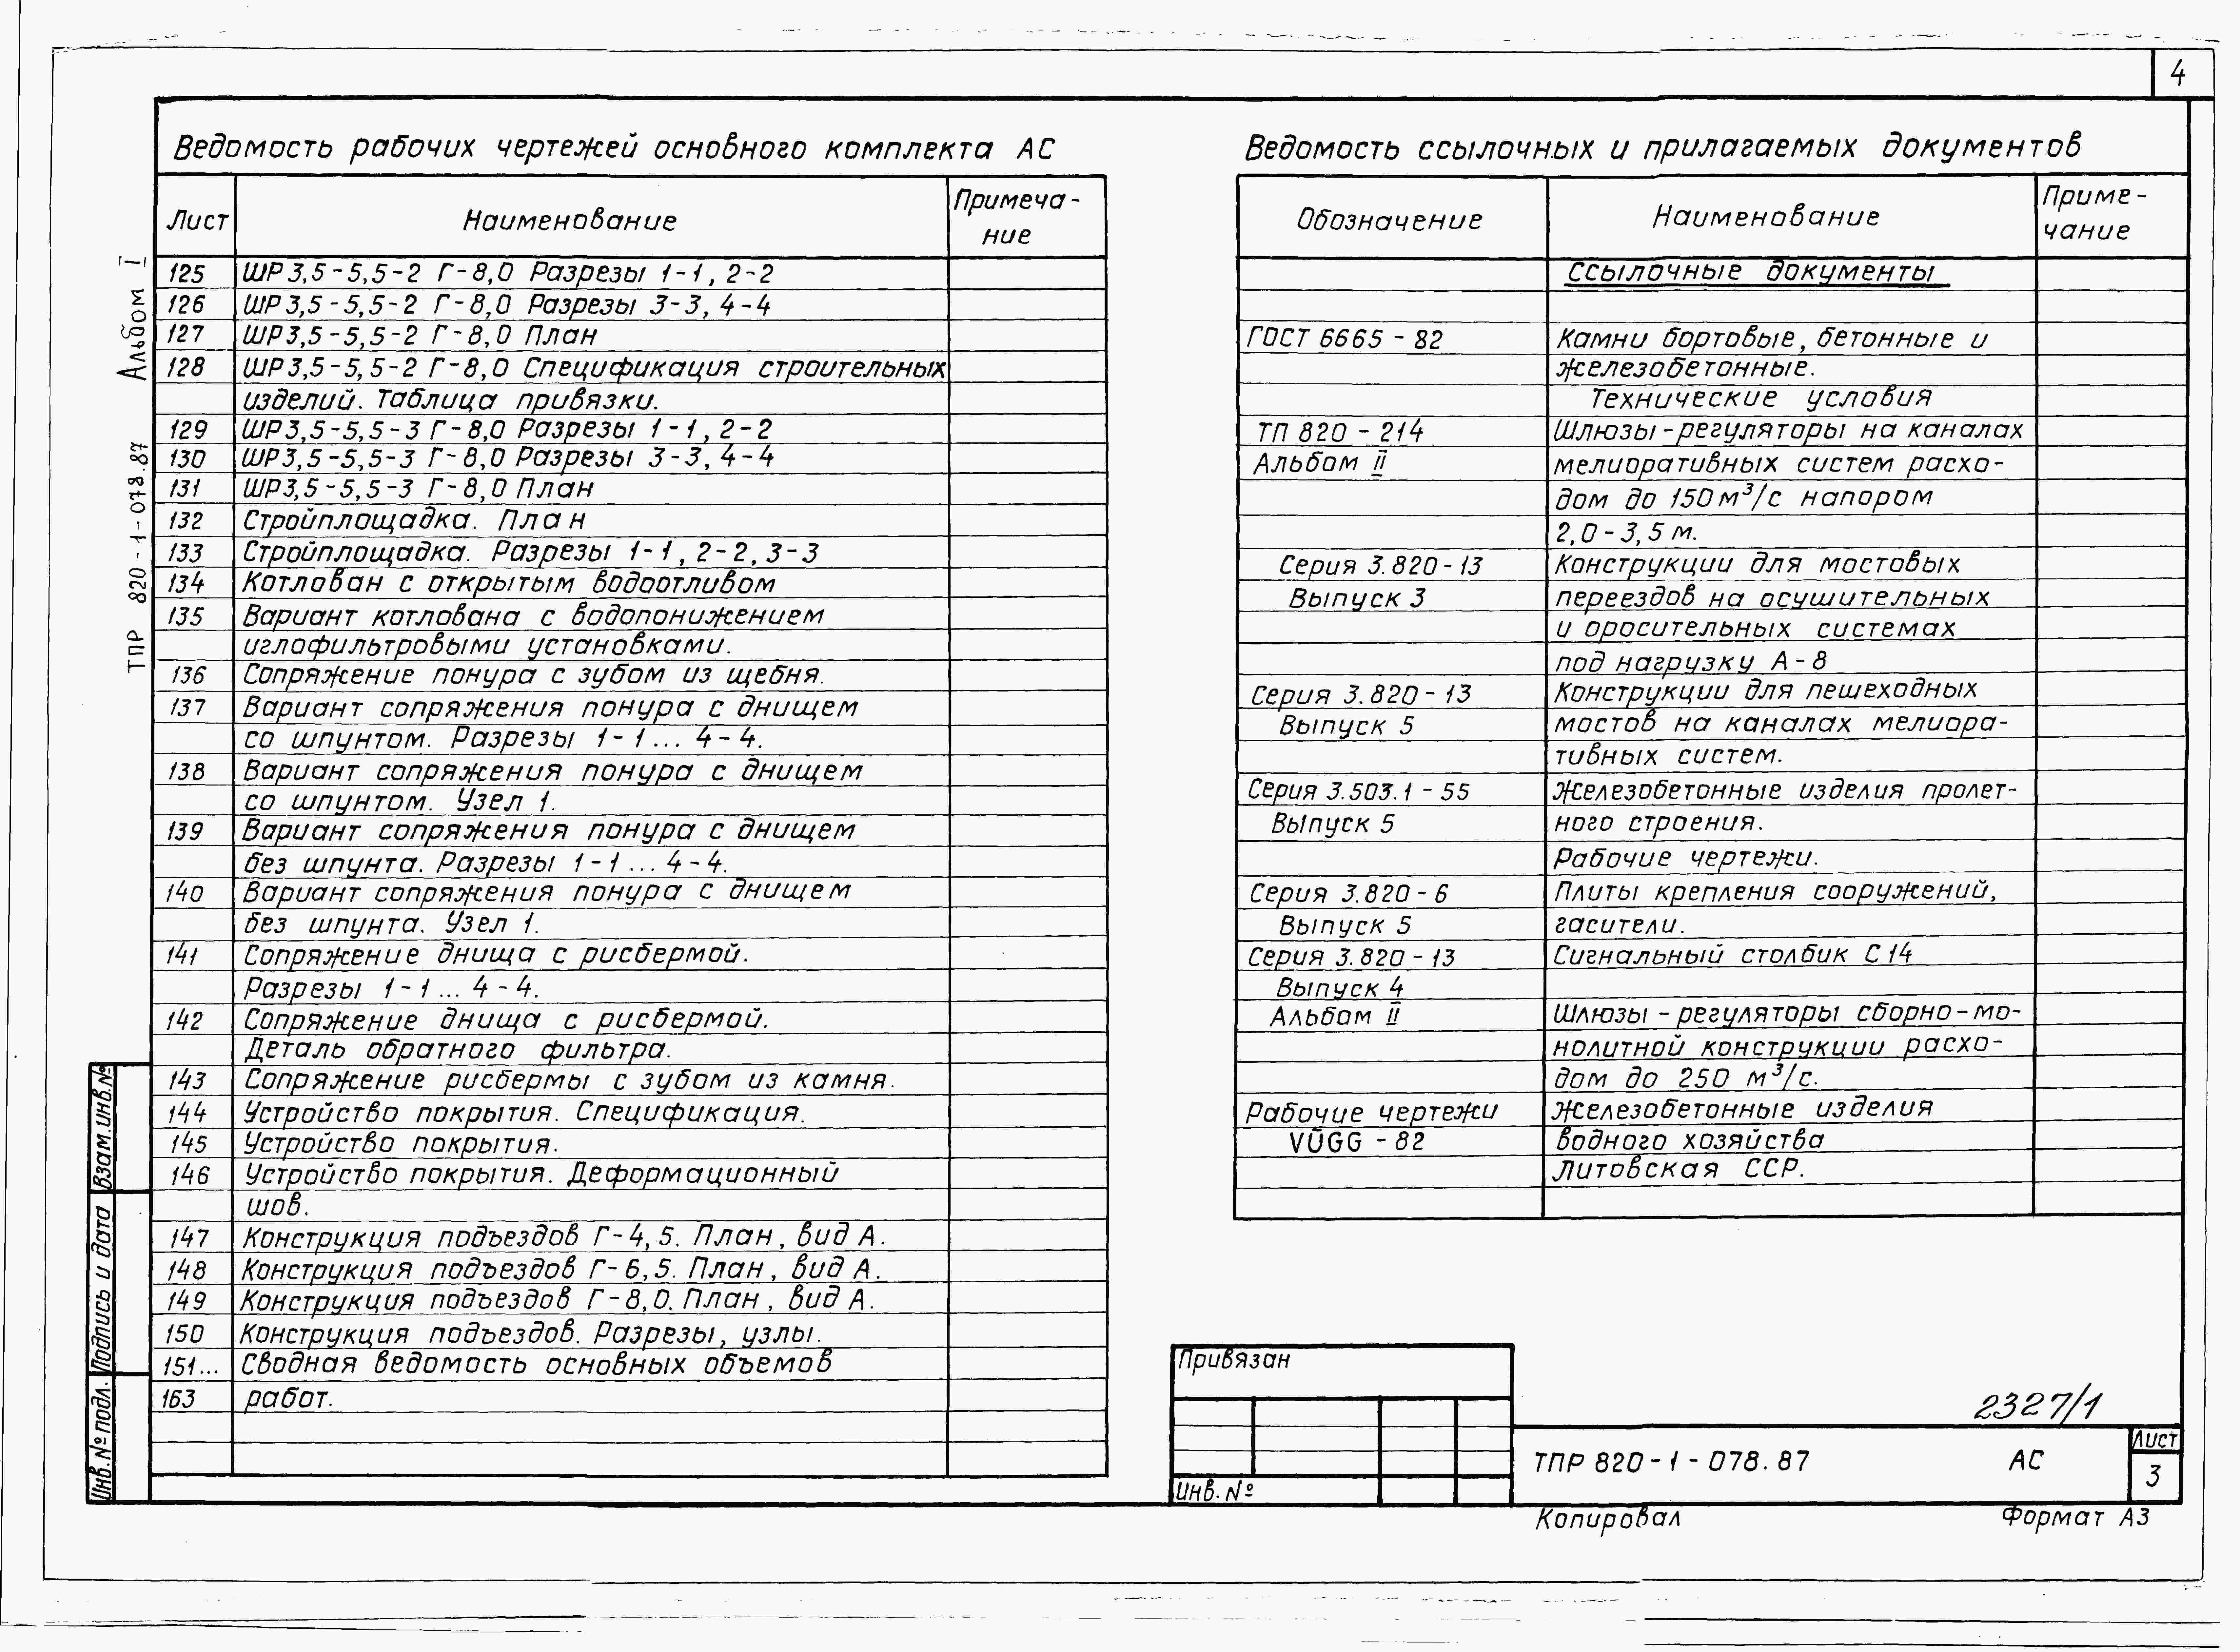 4
Ведомость рабочих чертежей основного комплекта АС
Лист Наименование Примеча-
ние
125 ШР 3,5-5,5-2 Г-8,0 Разрезы 1-1, 2-2
126 ШР 3,5-5,5-2 Г-8,0 Разрезы 3-3, 4-4
127 ШР 3,5-5,5-2 Г-8,0 План
128 ШР 3,5-5,5-2 Г-8,0 Спецификация строительных
изделий. Таблица привязки.
129 ШР 3,5-5,5-3 Г-8,0 Разрезы 1-1, 2-2
130 ШР 3,5-5,5-3 Г-8,0 Разрезы 3-3, 4-4
131 ШР 3,5-5,5-3 Г-8,0 План
132 Стройплощадка. План
133 Стройплощадка. Разрезы 1-1, 2-2, 3-3
134 Котлован с открытым водоотливом
135 Вариант котлована с водопонижением
иглофильтровыми установками.
136 Сопряжение понура с зубом из щебня.
137 Вариант сопряжения понура с днищем
со шпунтом. Разрезы 1-1... 4-4.
138 Вариант сопряжения понура с днищем
со шпунтом. Узел 1.
139 Вариант сопряжения понура с днищем
без шпунта. Разрезы 1-1... 4-4.
140 Вариант сопряжения понура с днищем
без шпунта. Узел 1.
141 Сопряжение днища с рисбермой.
Разрезы 1-1... 4-4.
142 Сопряжение днища с рисбермой.
Деталь обратного фильтра.
143 Сопряжение рисбермы с зубом из камня.
144 Устройство покрытия. Спецификация.
145 Устройство покрытия.
146 Устройство покрытия. Деформационный
шов.
147 Конструкция подъездов Г-4,5. План, вид А.
148 Конструкция подъездов Г-6,5. План, вид А.
149 Конструкция подъездов Г-8,0. План, вид А.
150 Конструкция подъездов. Разрезы, узлы.
151... Сводная ведомость основных объемов
163 работ.
Ведомость ссылочных и прилагаемых документов
Обозначение Наименование Приме-
чание
Ссылочные документы
ГОСТ 6665-82 Камни бортовые, бетонные и
железобетонные.
Технические условия
ТП 820-214 Шлюзы-регуляторы на каналах
Альбом II мелиоративных систем расхо-
дом до 150 м³/с напором
2,0-3,5 м.
Серия 3.820-13 Конструкции для мостовых
Выпуск 3 переездов на осушительных
и оросительных системах
под нагрузку А-8
Серия 3.820-13 Конструкции для пешеходных
Выпуск 5 мостов на каналах мелиора-
тивных систем.
Серия 3.503.1-55 Железобетонные изделия пролет-
Выпуск 5 ного строения.
Рабочие чертежи.
Серия 3.820-6 Плиты крепления сооружений,
Выпуск 5 гасители.
Серия 3.820-13 Сигнальный столбик С14
Выпуск 4
Альбом II Шлюзы-регуляторы сборно-мо-
нолитной конструкции расхо-
дом до 250 м³/с.
Рабочие чертежи Железобетонные изделия
VŪGG-82 водного хозяйства
Литовская ССР.
ТПР 820-1-078.87 Альбом I
Взам. инв. №
Подпись и дата
Инв. № подл.
Привязан
Инв. №
2327/1
ТПР 820-1-078.87 АС
Лист
3
Копировал Формат А3